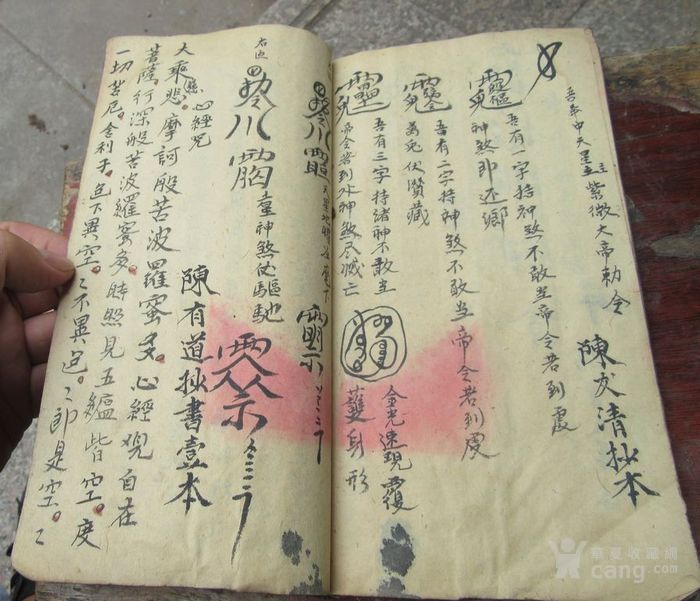 吾奉中天星主紫微大帝勅令
陳友清抄本
吾有一字持神煞不敢当帝令若到處
神煞即还鄉
吾有二字持神煞不敢当帝令若到處
為免伏潛藏
吾有三字持諸神不敢当
帝令若到外神煞尽滅亡
金光速現覆
護身形
神煞伏驅馳
陳有道抄書壹本
大乘慈悲心經咒
摩訶般苦波羅蜜多心經观自在
菩薩行深般苦波羅蜜多時照見五蘊皆空度
一切苦厄舍利子色不異空空不異色色即是空空
華夏收藏網
cang.com